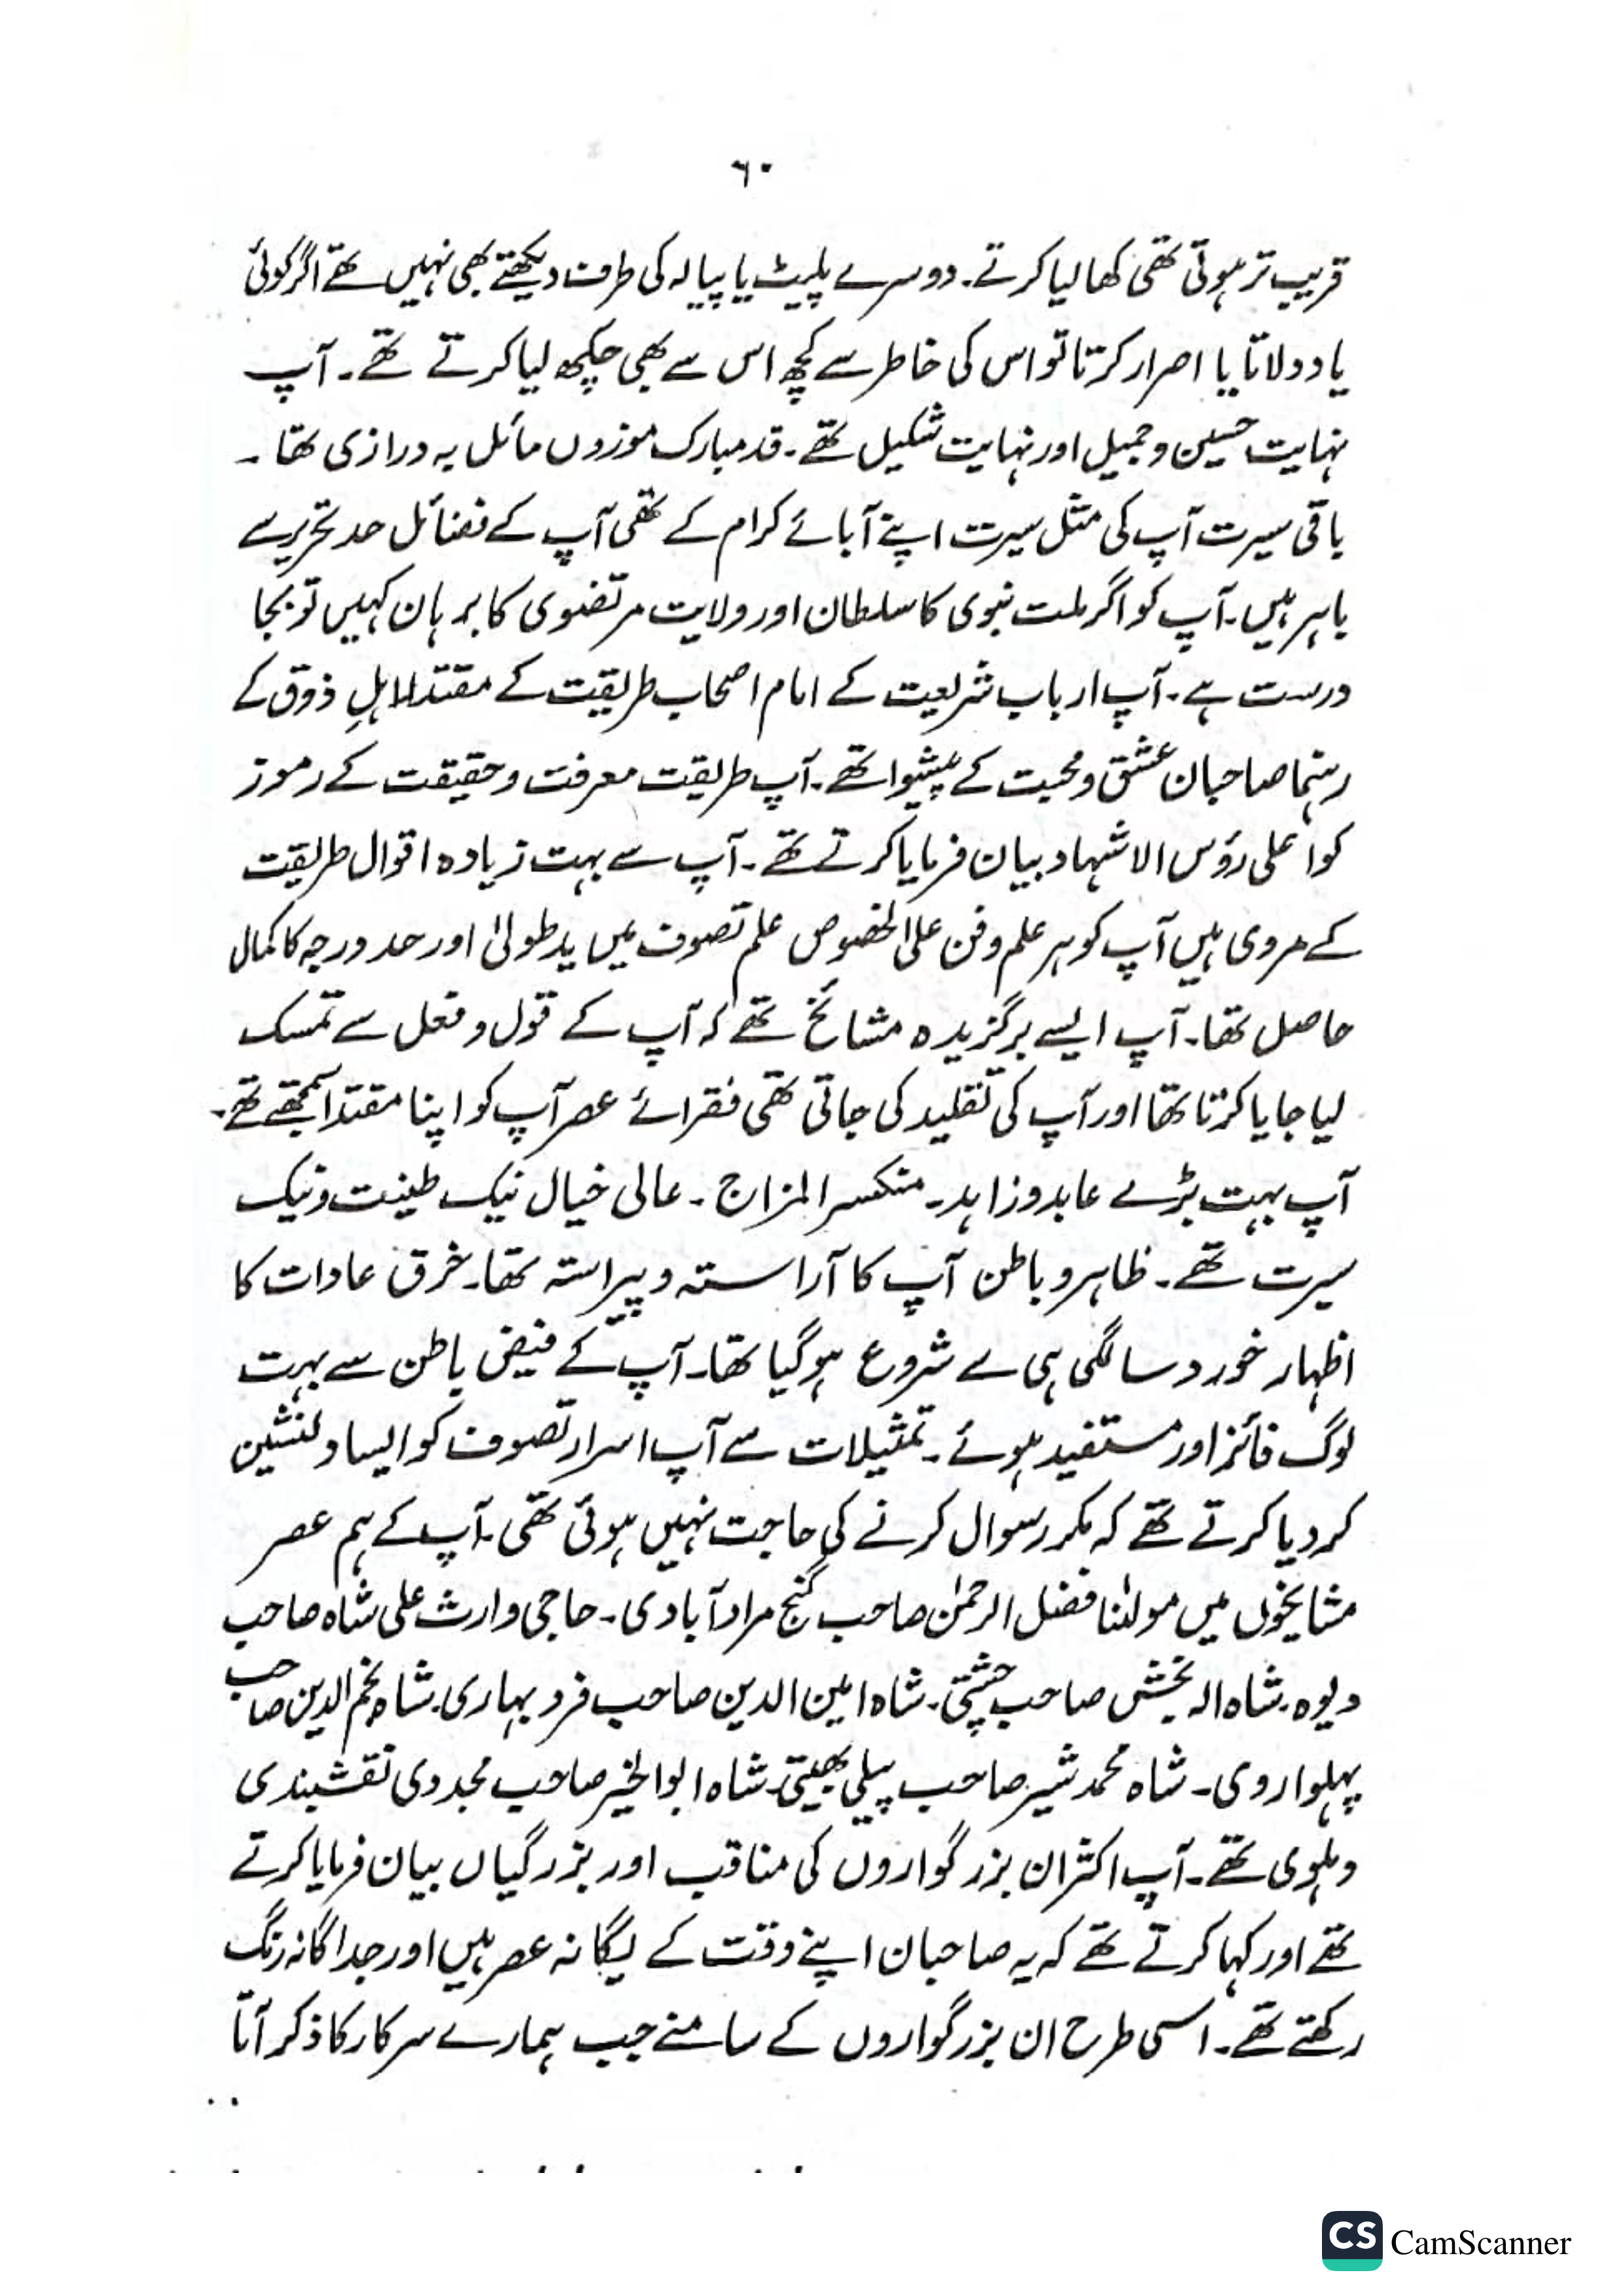 ۶۰
قریب تر ہوتی تھی کھا لیا کرتے۔ دوسرے پلیٹ یا پیالہ کی طرف دیکھتے بھی نہیں تھے اگر کوئی
یاد دلاتا یا اصرار کرتا تو اس کی خاطر سے کچھ اس سے بھی چکھ لیا کرتے تھے۔ آپ
نہایت حسین و جمیل اور نہایت شکیل تھے۔ قد مبارک موزوں مائل بہ درازی تھا۔
باقی سیرت آپ کی مثل سیرت اپنے آبائے کرام کے تھی آپ کے فضائل حد تحریر سے
باہر ہیں۔ آپ کو اگر ملت نبوی کا سلطان اور ولایت مرتضوی کا برہان کہیں تو بجا
درست ہے۔ آپ ارباب شریعت کے امام اصحاب طریقت کے مقتدا اہلِ ذوق کے
رہنما صاحبان عشق و محبت کے پیشوا تھے۔ آپ طریقت معرفت و حقیقت کے رموز
کو اعلی رؤس الاشہاد بیان فرمایا کرتے تھے۔ آپ سے بہت زیادہ اقوال طریقت
کے مروی ہیں آپ کو ہر علم و فن علی الخصوص علم تصوف میں ید طولیٰ اور حد درجہ کا کمال
حاصل تھا۔ آپ ایسے برگزیدہ مشائخ تھے کہ آپ کے قول و فعل سے تمسک
لیا جایا کرتا تھا اور آپ کی تقلید کی جاتی تھی فقرائے عصر آپ کو اپنا مقتدا سمجھتے تھے۔
آپ بہت بڑے عابد و زاہد۔ منکسر المزاج۔ عالی خیال نیک طینت و نیک
سیرت تھے۔ ظاہر و باطن آپ کا آراستہ و پیراستہ تھا۔ خرق عادات کا
اظہار خورد سالگی ہی سے شروع ہو گیا تھا۔ آپ کے فیض باطن سے بہت
لوگ فائز اور مستفید ہوئے۔ تمثیلات سے آپ اسرار تصوف کو ایسا دلنشین
کر دیا کرتے تھے کہ مکرر سوال کرنے کی حاجت نہیں ہوئی تھی۔ آپ کے ہم عصر
مشایخوں میں مولٰنا فضل الرحمٰن صاحب گنج مراد آبادی۔ حاجی وارث علی شاہ صاحب
دیوہ۔ شاہ الہ بخش صاحب چشتی۔ شاہ امین الدین صاحب فرد بہاری۔ شاہ نجم الدین صاحب
پہلواروی۔ شاہ محمد شیر صاحب پیلی بھیتی۔ شاہ ابو الخیر صاحب مجددی نقشبندی
دہلوی تھے۔ آپ اکثر ان بزرگواروں کی مناقب اور بزرگیاں بیان فرمایا کرتے
تھے اور کہا کرتے تھے کہ یہ صاحبان اپنے وقت کے یگانہ عصر ہیں اور جداگانہ رنگ
رکھتے تھے۔ اسی طرح ان بزرگواروں کے سامنے جب ہمارے سرکار کا ذکر آتا
CS CamScanner